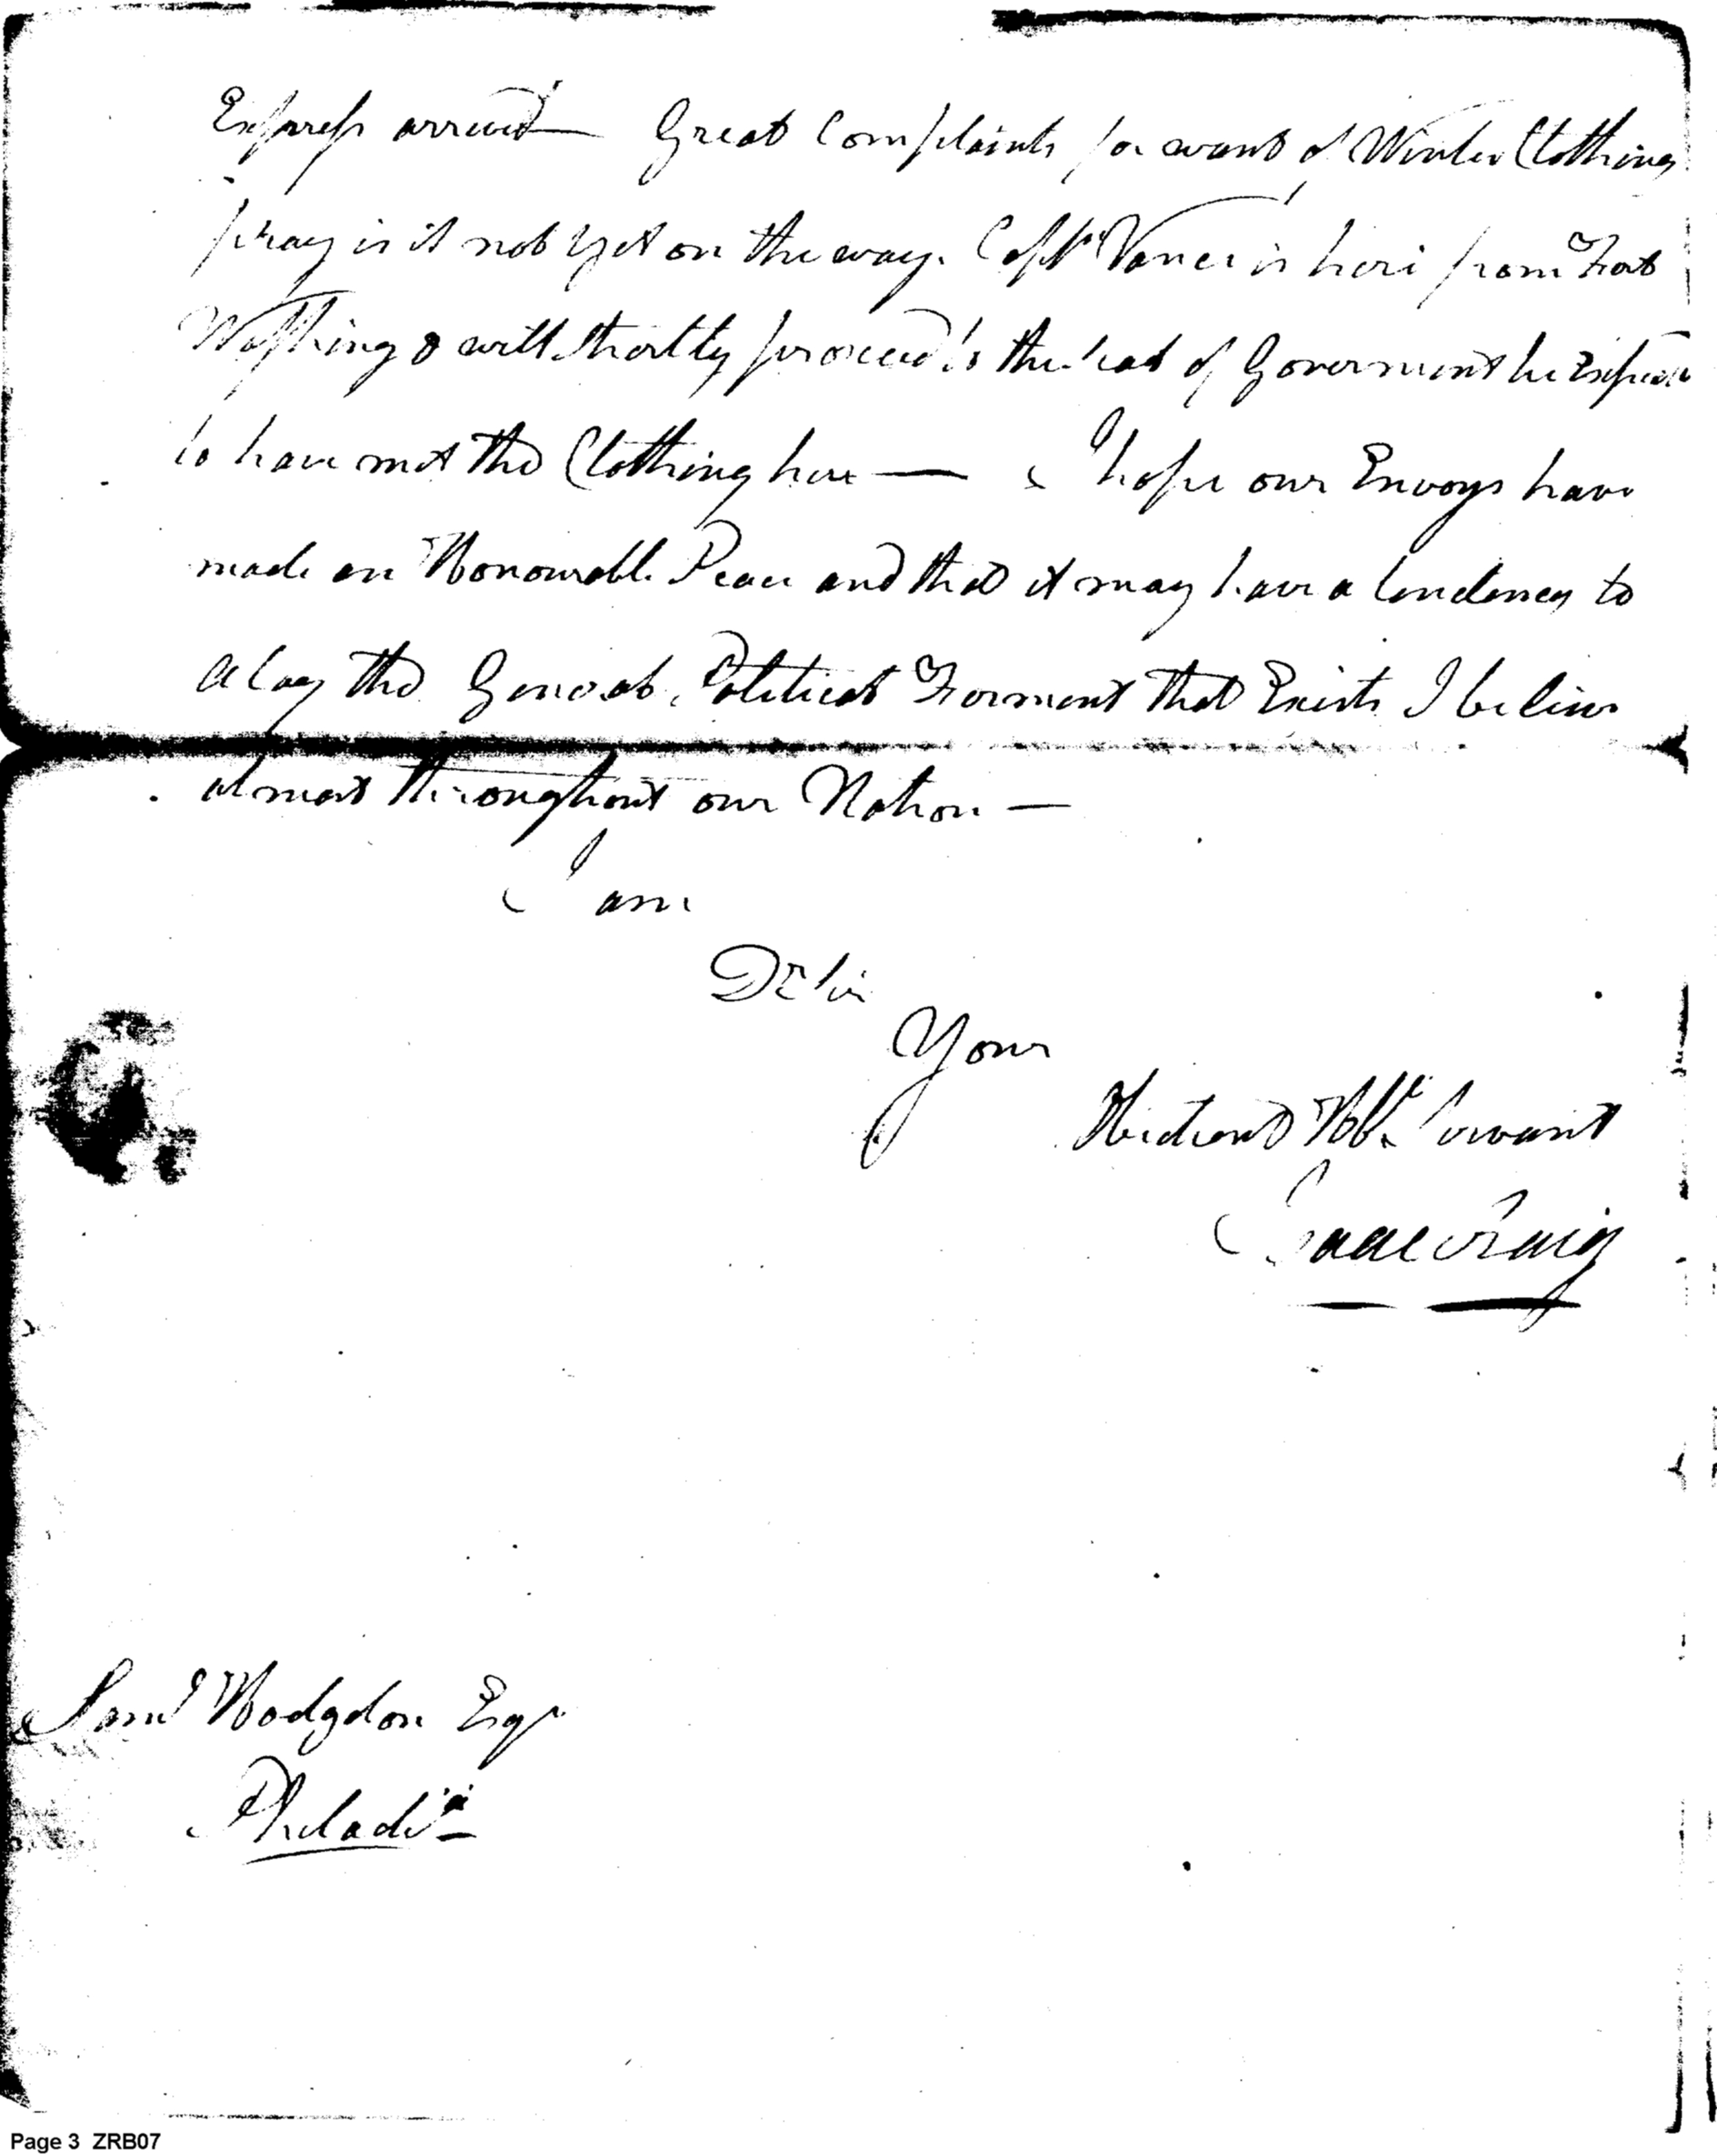 Express arrived — Great Complaints for want of Winter Clothing
pray is it not Yet on the way. Capt Vance is here from Fort
Washing & will Shortly proceed to the Seat of Goverment he Expects
to have met the Clothing here — I hope our Envoys have
made an Honourable Peace and that it may have a tendency to
alay the General Political Forment that Exists I believe
almost throughout our Nation —
I am
Dr Sir
Your
Obedient Hble Servant
Isaac Craig
Saml Hodgdon Esqr
Philadia
Page 3 ZRB07